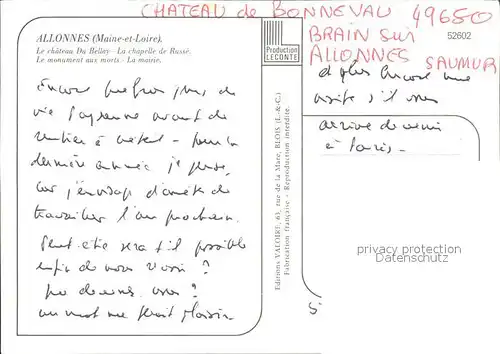 CHATEAU de BONNEVAU 49650
BRAIN sur
ALLONNES SAUMUR
52602
ALLONNES (Maine-et-Loire).
Le château Du Bellay - La chapelle de Russé.
Le monument aux morts - La mairie.
Production
LECONTE
Encore quelques jours de
vie Paysanne avant de
rentrer à - pour la
dernière année je pense,
car j'envisage d'arrêter de
travailler l'an prochain.
Peut-être sera-t-il possible
enfin de vous voir ?
que devenez vous ?
un mot me ferait plaisir
et plus encore une
visite s'il vous
arrive de venir
à Paris -
Editions VALOIRE, 63, rue de la Mare, BLOIS (L.-&-C.)
Fabrication française - Reproduction interdite.
privacy protection
Datenschutz